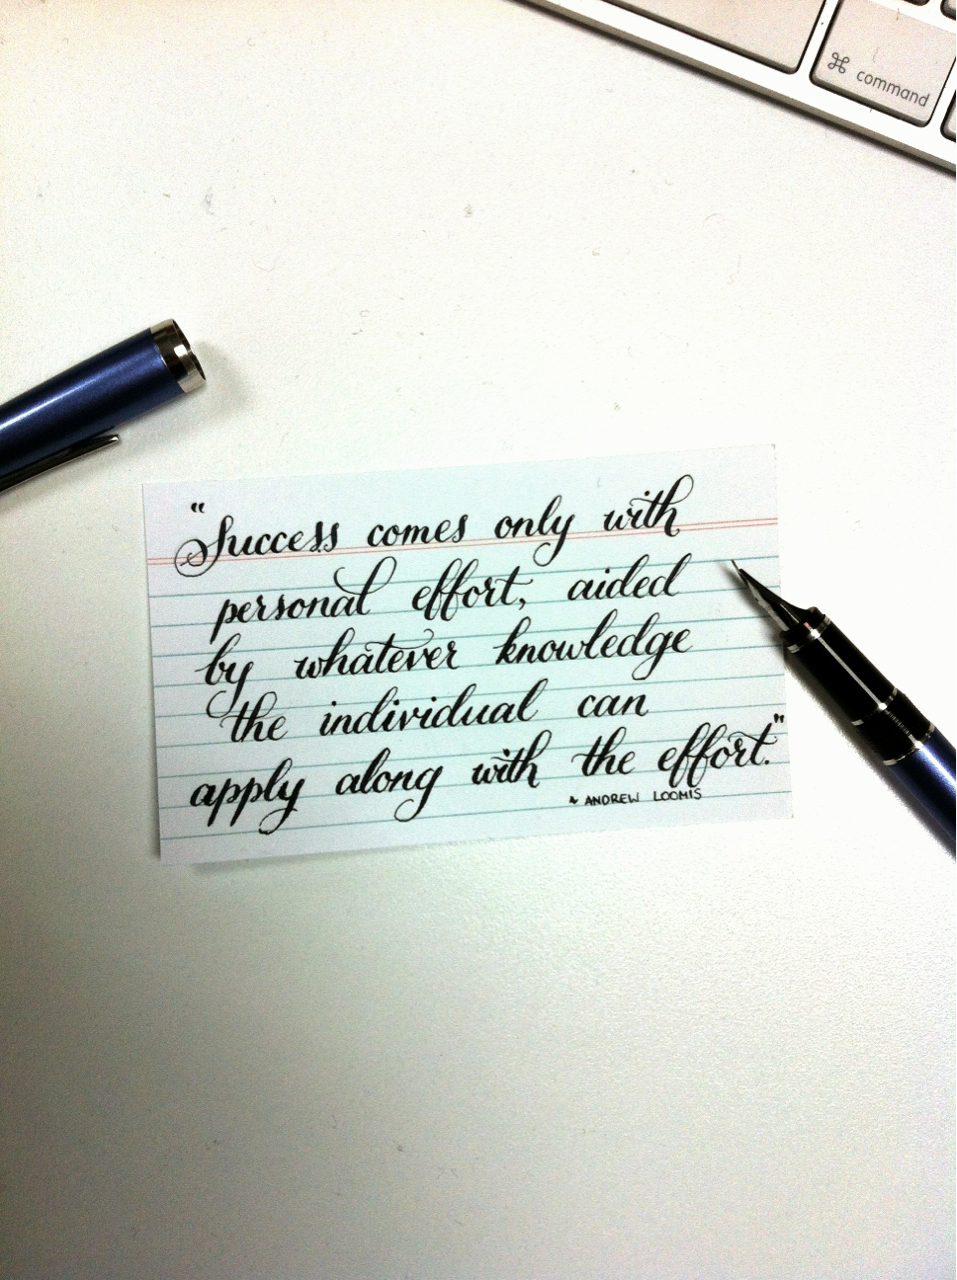 ⌘ command
"Success comes only with
personal effort, aided
by whatever knowledge
the individual can
apply along with the effort."
~ ANDREW LOOMIS